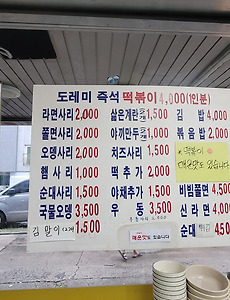 도레미 즉석 떡볶이 4,000(1인분)
라면사리 2,000
쫄면사리 2,000
오뎅사리 2,000
햄사리 1,000
순대사리 1,500
국물오뎅 3,500
김말이(2개) 1,500
삶은계란 2개 1,500
야끼만두 2개 1,000
치즈사리 1,500
떡추가 2,000
야채추가 1,500
우동 3,500
우동사리 2,000
매운맛도 있습니다
김밥 4,000
볶음밥 2,000
떡볶이
매운맛도 있습니다
비빔쫄면 4,500
신라면 4,000
순대 450